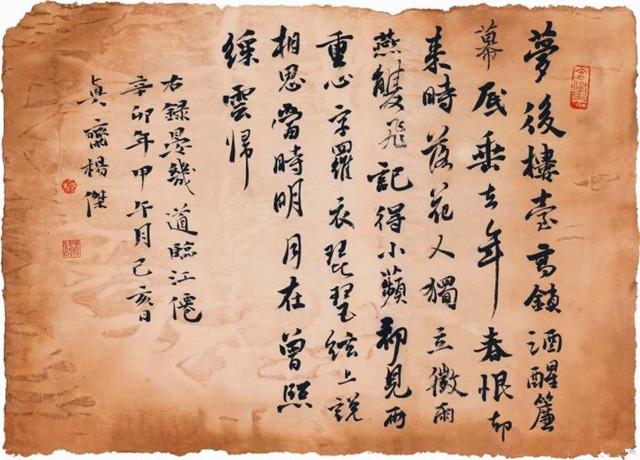 夢後樓臺高鎖酒醒簾
幕低垂去年春恨却
来時落花人獨立微雨
燕雙飛記得小蘋初見兩
重心字羅衣琵琶絃上説
相思當時明月在曾照
綵雲歸
右錄晏幾道臨江僊
辛卯年甲午月己亥日
眞齋楊傑